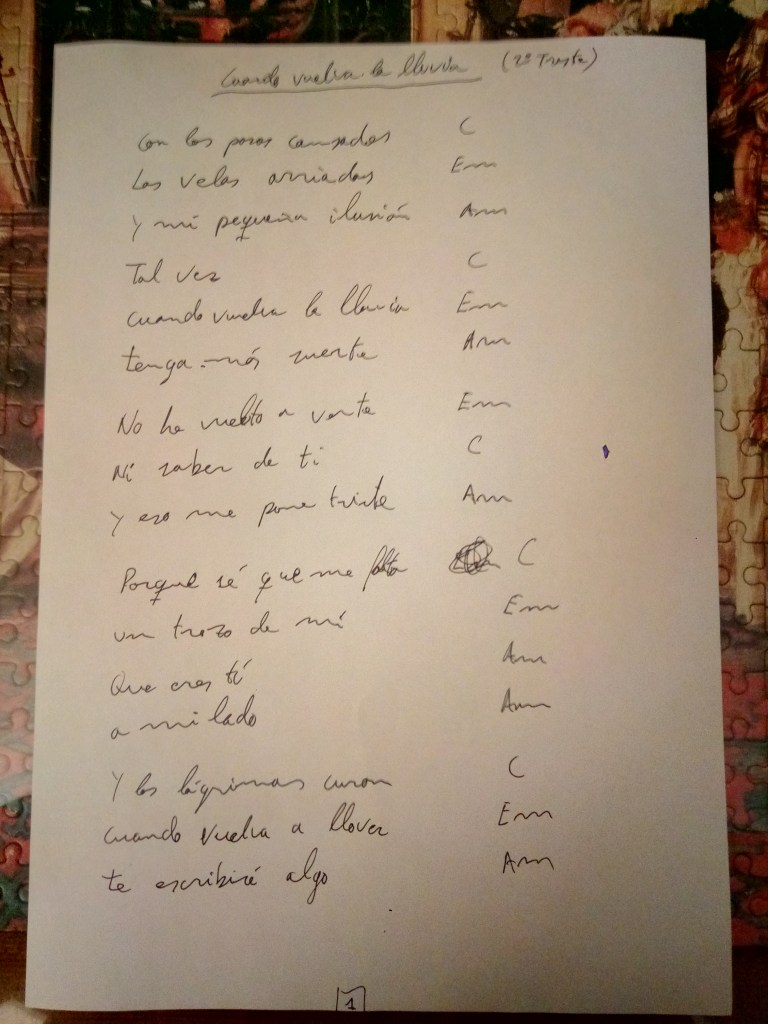 Cuando vuelva la lluvia (2º Traste)
Con los pasos cansados C
Las velas arriadas Em
Y mi pequeña ilusión Am
Tal vez C
cuando vuelva la lluvia Em
tenga más suerte Am
No he vuelto a verte Em
Ni saber de ti C
Y eso me pone triste Am
Porque sé que me falta C
un trozo de mí Em
Que eres tí Am
a mi lado Am
Y las lágrimas curan C
cuando vuelva a llover Em
te escribiré algo Am
1